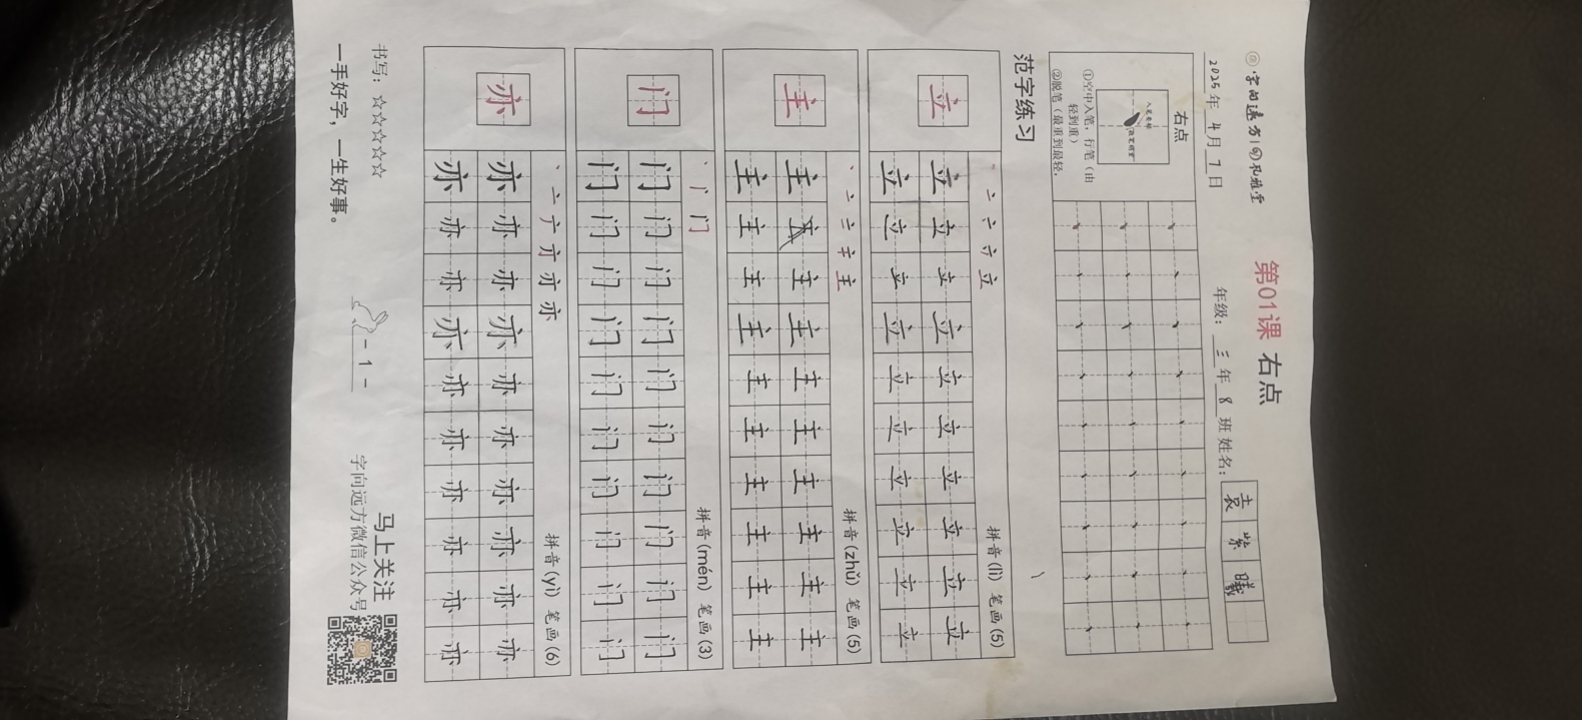 字向远方
第01课 右点
2025年4月7日 年级：三年8班 姓名：袁紫曦
右点
①空中入笔，行笔（由
轻到重）
②脱笔（最重到最轻，
范字练习
立 丶 亠 立 拼音(lì) 笔画(5)
立 立 立 立 立 立 立 立 立 立
立 立 立 立 立 立 立 立 立 立
主 丶 亠 主 拼音(zhǔ) 笔画(5)
主 主 主 主 主 主 主 主 主
主 主 主 主 主 主 主 主 主 主
门 丶 门 拼音(mén) 笔画(3)
门 门 门 门 门 门 门 门 门 门
门 门 门 门 门 门 门 门 门 门
亦 丶 亠 亦 拼音(yì) 笔画(6)
亦 亦 亦 亦 亦 亦 亦 亦 亦 亦
亦 亦 亦 亦 亦 亦 亦 亦 亦 亦
书写：☆☆☆☆☆
马上关注
一手好字，一生好事。
字向远方微信公众号
- 1 -